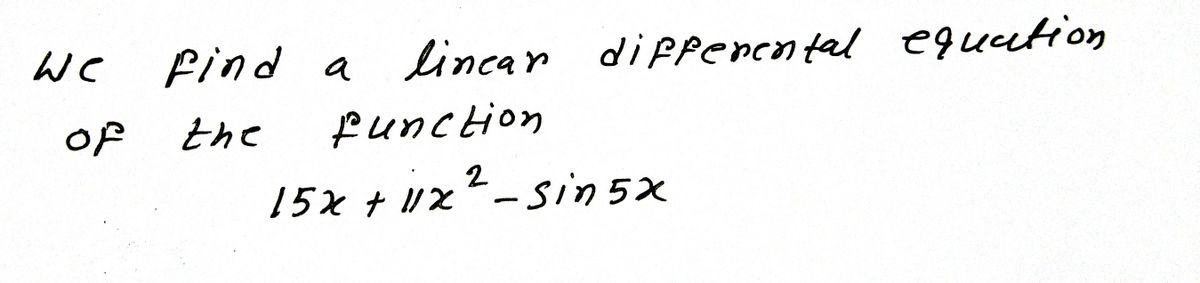 We find a linear differental equation
of the function
15x + 11x² - sin 5x